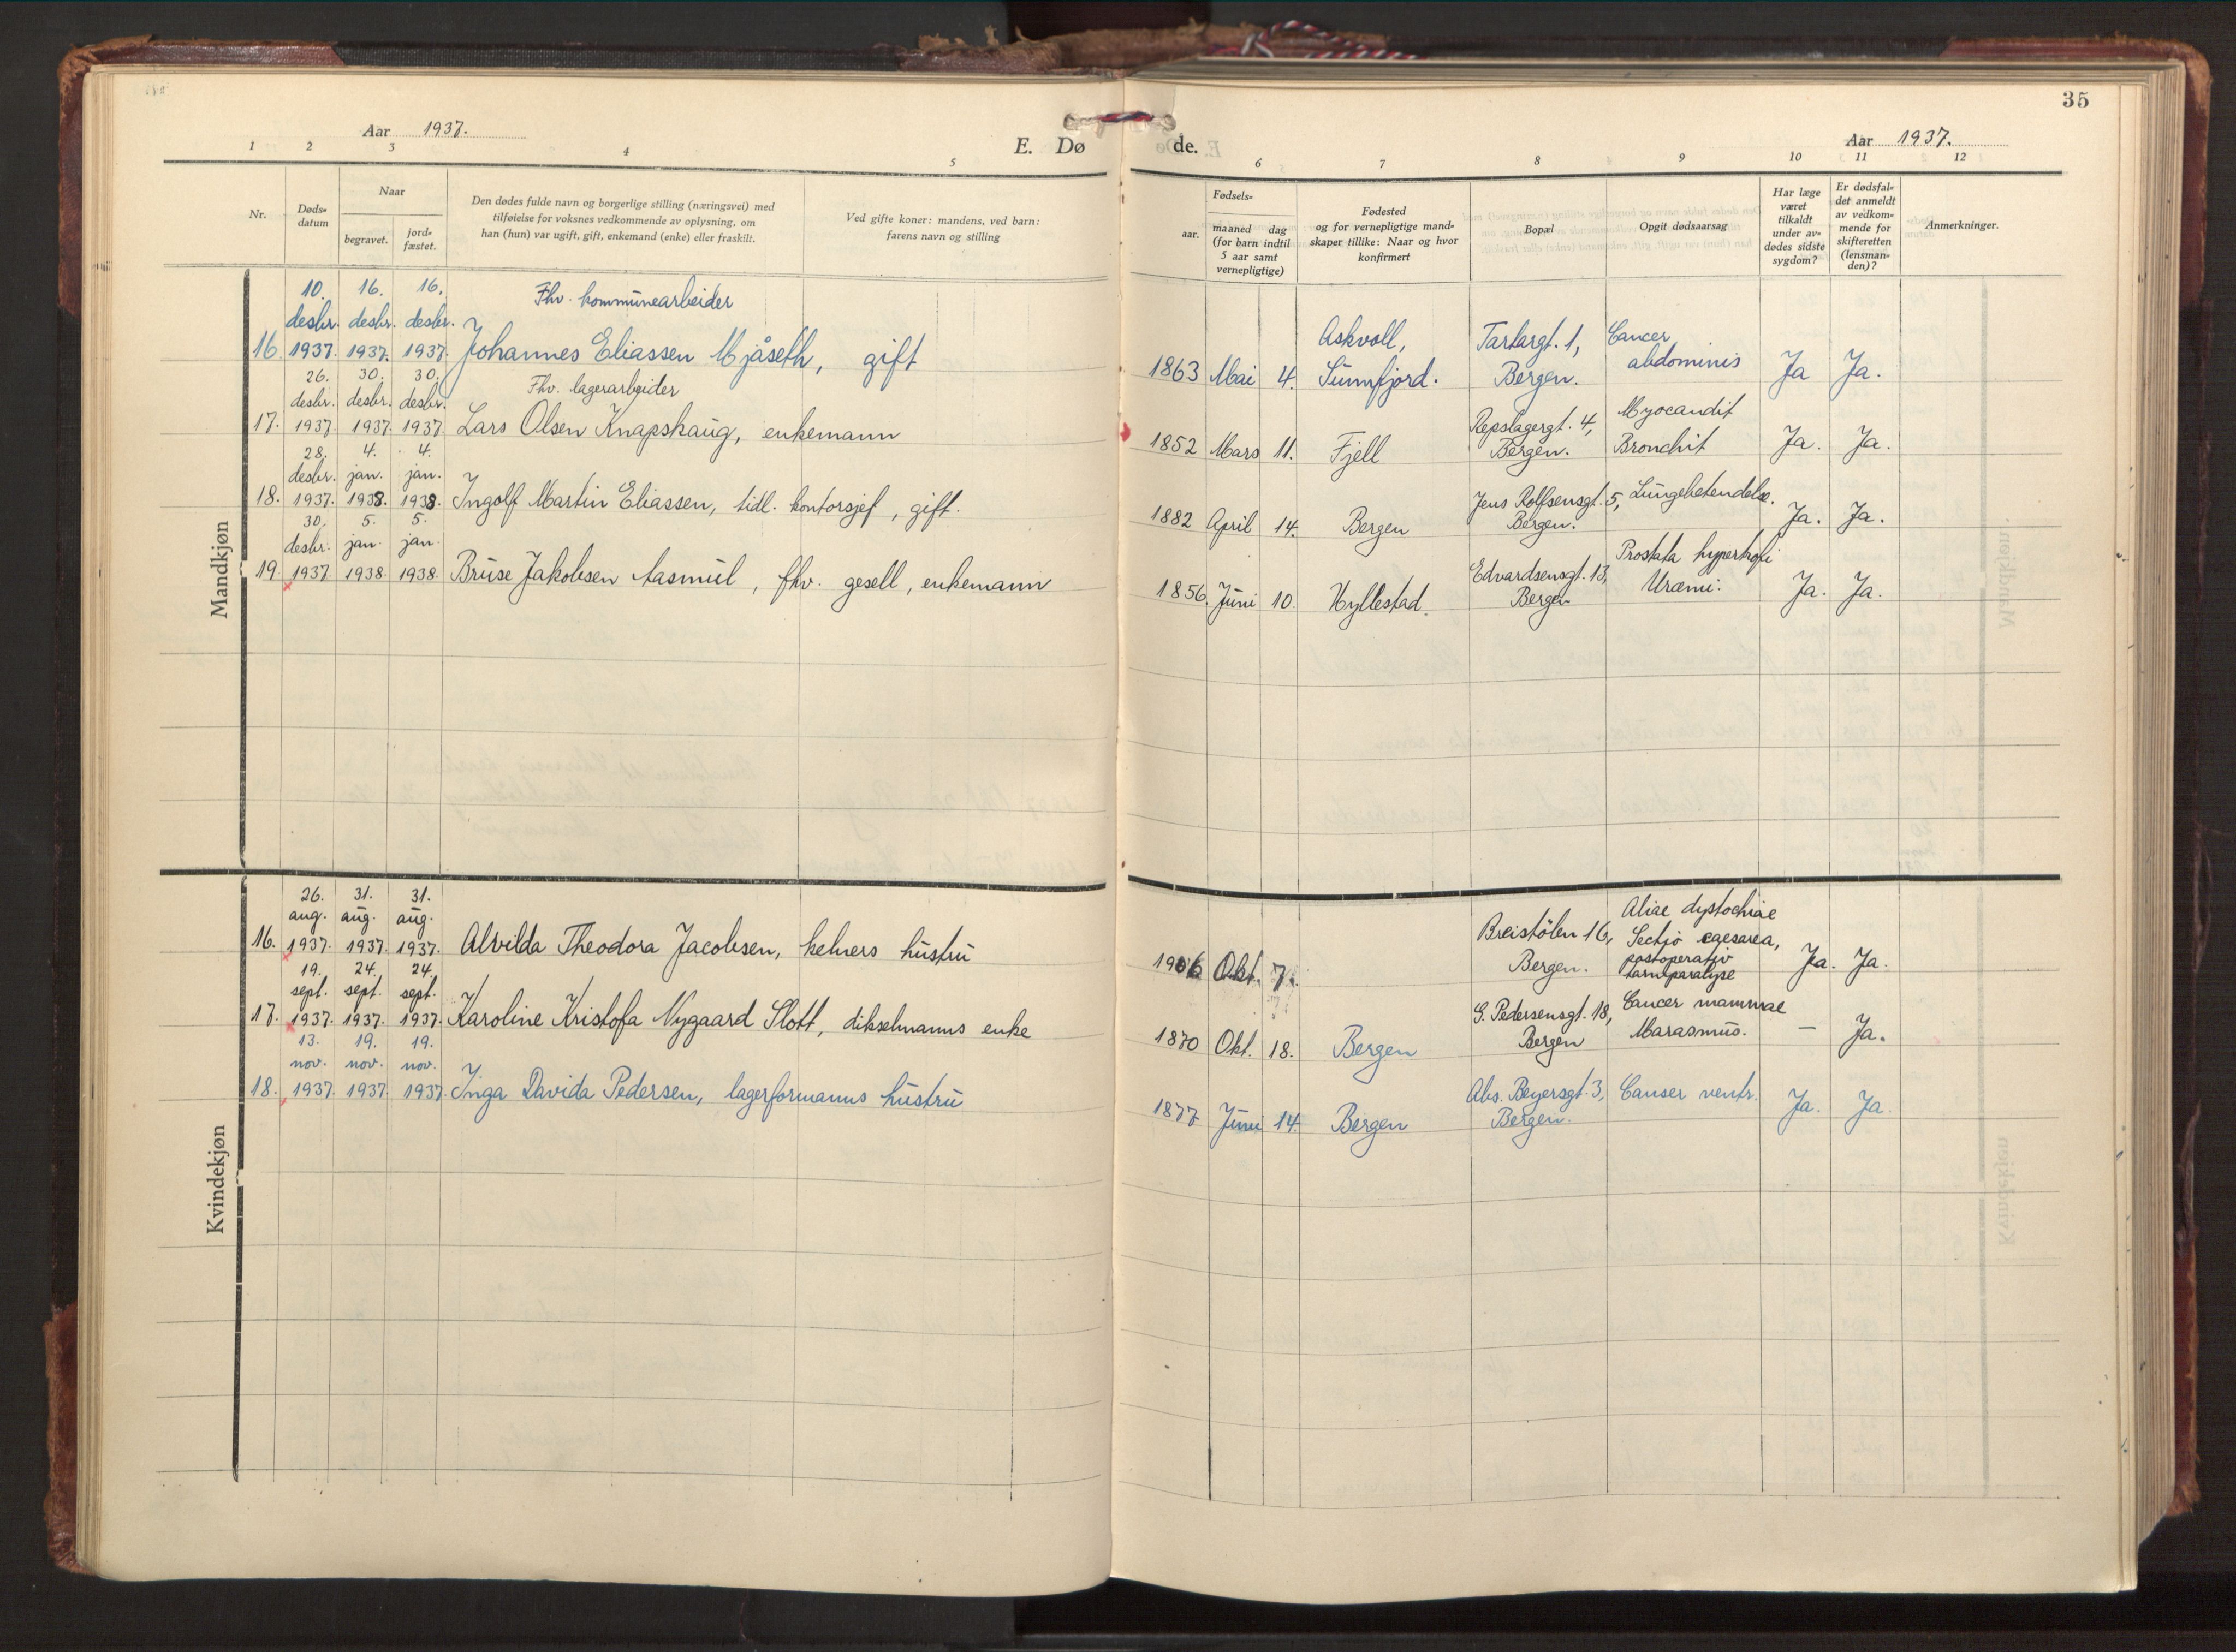 35
Aar 1937.
E. Døde.
Aar 1937.
1 2 3 4 5 6 7 8 9 10 11 12
Nr.
Døds-
datum
Naar
begravet.
jord-
fæstet.
Den dødes fulde navn og borgerlige stilling (næringsvei) med
tilføielse for voksnes vedkommende av oplysning, om
han (hun) var ugift, gift, enkemand (enke) eller fraskilt.
Ved gifte koner: mandens, ved barn:
farens navn og stilling
Fødsels-
aar.
maaned dag
(for barn indtil
5 aar samt
vernepligtige)
Fødested
og for vernepligtige mand-
skaper tillike: Naar og hvor
konfirmert
Bopæl
Opgit dødsaarsag
Har læge
været
tilkaldt
under av-
dødes sidste
sygdom?
Er dødsfal-
det anmeldt
av vedkom-
mende for
skifteretten
(lensman-
den)?
Anmerkninger.
Mandkjøn
10. 16. 16. Fhv. kommunearbeider
desbr. desbr. desbr.
16. 1937. 1937. 1937. Johannes Eliassen Mjåseth, gift
Askvoll, Tartargt. 1, Cancer
1863 Mai 4. Sunnfjord. Bergen. abdominis Ja Ja.
26. 30. 30. Fhv. lagerarbeider
desbr. desbr. desbr.
17. 1937 1937 1937 Lars Olsen Knapskaug, enkemann
Repslagergt. 4, Myocandit
1852 Mars 11. Fjell Bergen. Bronchit Ja. Ja.
28. 4. 4.
desbr. jan. jan.
18. 1937. 1938. 1938. Ingolf Martin Eliassen, tidl. kontorsjef, gift.
Jens Rolfsensgt. 5, Lungebetendelse.
1882 April 14. Bergen Bergen. Ja. Ja.
30. 5. 5.
desbr. jan. jan.
19. 1937 1938. 1938. Bruse Jakobsen Aasmul, fhv. gesell, enkemann
Edvardsensgt. 13, Prostata hypertrofi
1856 Juni 10. Hyllestad. Bergen Uræmi. Ja. Ja.
Kvindekjøn
26. 31. 31.
aug. aug. aug.
16. 1937. 1937. 1937. Alvilda Theodora Jacobsen, kelners hustru
Breistølen 16, Aliae dystochiae
Sectio caesarea,
1906 Okt. 7. Bergen. postoperativ Ja. Ja.
tarmparalyse
19. 24. 24.
sept. sept. sept.
17. 1937. 1937. 1937. Karoline Kristofa Nygaard Slott, dikselmanns enke
G. Pedersensgt. 18, Cancer mammae
1870 Okt. 18. Bergen Bergen Marasmus. — Ja.
13. 19. 19.
nov. nov. nov.
18. 1937. 1937. 1937. Inga Davida Pedersen, lagerformanns hustru
Abs. Beyersgt. 3, Canser ventr.
1877 Juni 14. Bergen Bergen. Ja. Ja.